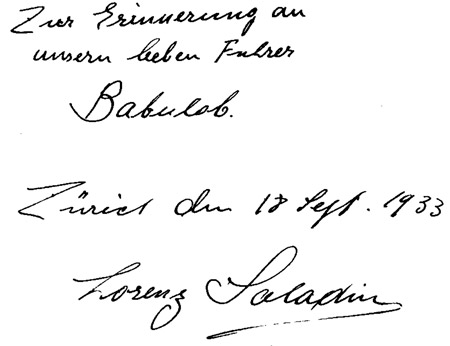 Zur Erinnerung an
unsern lieben Führer
Babulob.
Zürich den 18 Sept. 1933
Lorenz Saladin